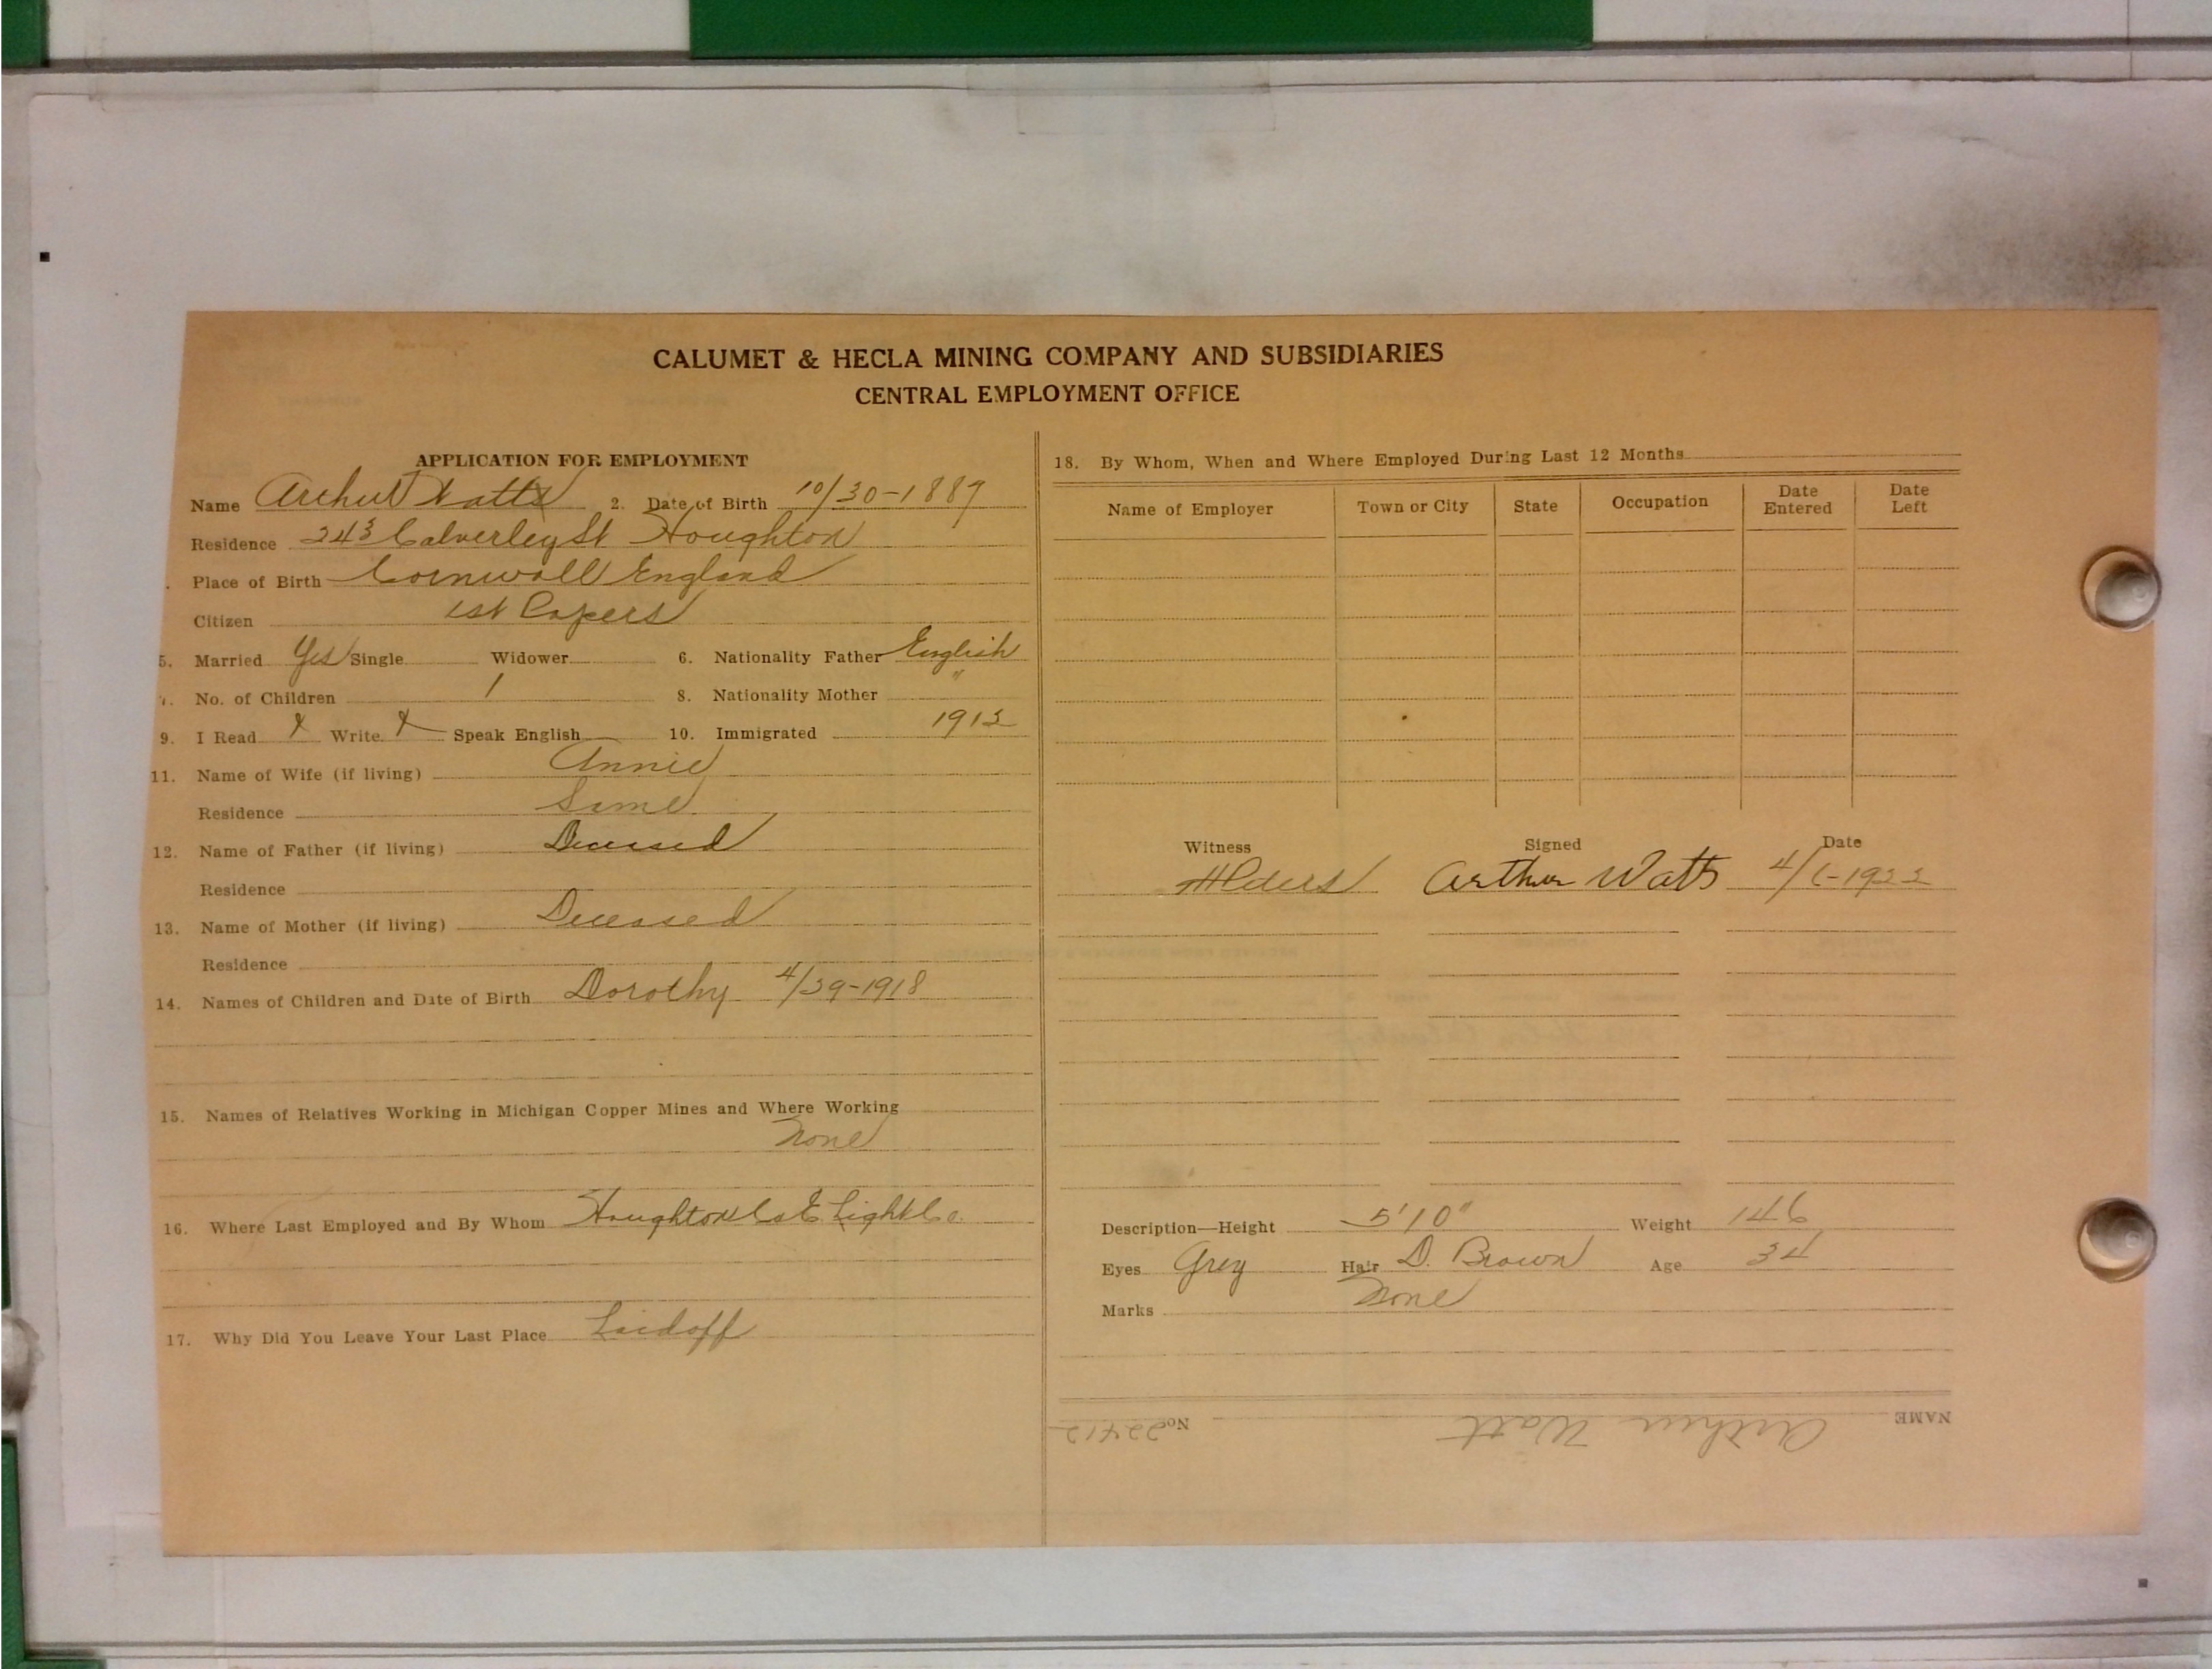 CALUMET & HECLA MINING COMPANY AND SUBSIDIARIES
CENTRAL EMPLOYMENT OFFICE
APPLICATION FOR EMPLOYMENT
Name Arthur Watts 2. Date of Birth 10/30-1889
Residence 243 Calverley St Houghton
Place of Birth Cornwall England
Citizen 1st Papers
5. Married Yes Single Widower 6. Nationality Father English
7. No. of Children 1 8. Nationality Mother "
9. I Read X Write X Speak English 10. Immigrated
11. Name of Wife (if living) Annie
Residence Same
12. Name of Father (if living) Deceased
Residence
13. Name of Mother (if living) Deceased
Residence
14. Names of Children and Date of Birth Dorothy 4/29-1918
15. Names of Relatives Working in Michigan Copper Mines and Where Working
None
16. Where Last Employed and By Whom Houghton Co E. Light Co.
17. Why Did You Leave Your Last Place Laidoff
18. By Whom, When and Where Employed During Last 12 Months
Name of Employer Town or City State Occupation Date Entered Date Left
Witness Signed Date
Arthur Watts
Description—Height 5'10" Weight 146
Eyes Grey Hair D. Brown Age 34
Marks None
NAME Arthur Watt No. 22412